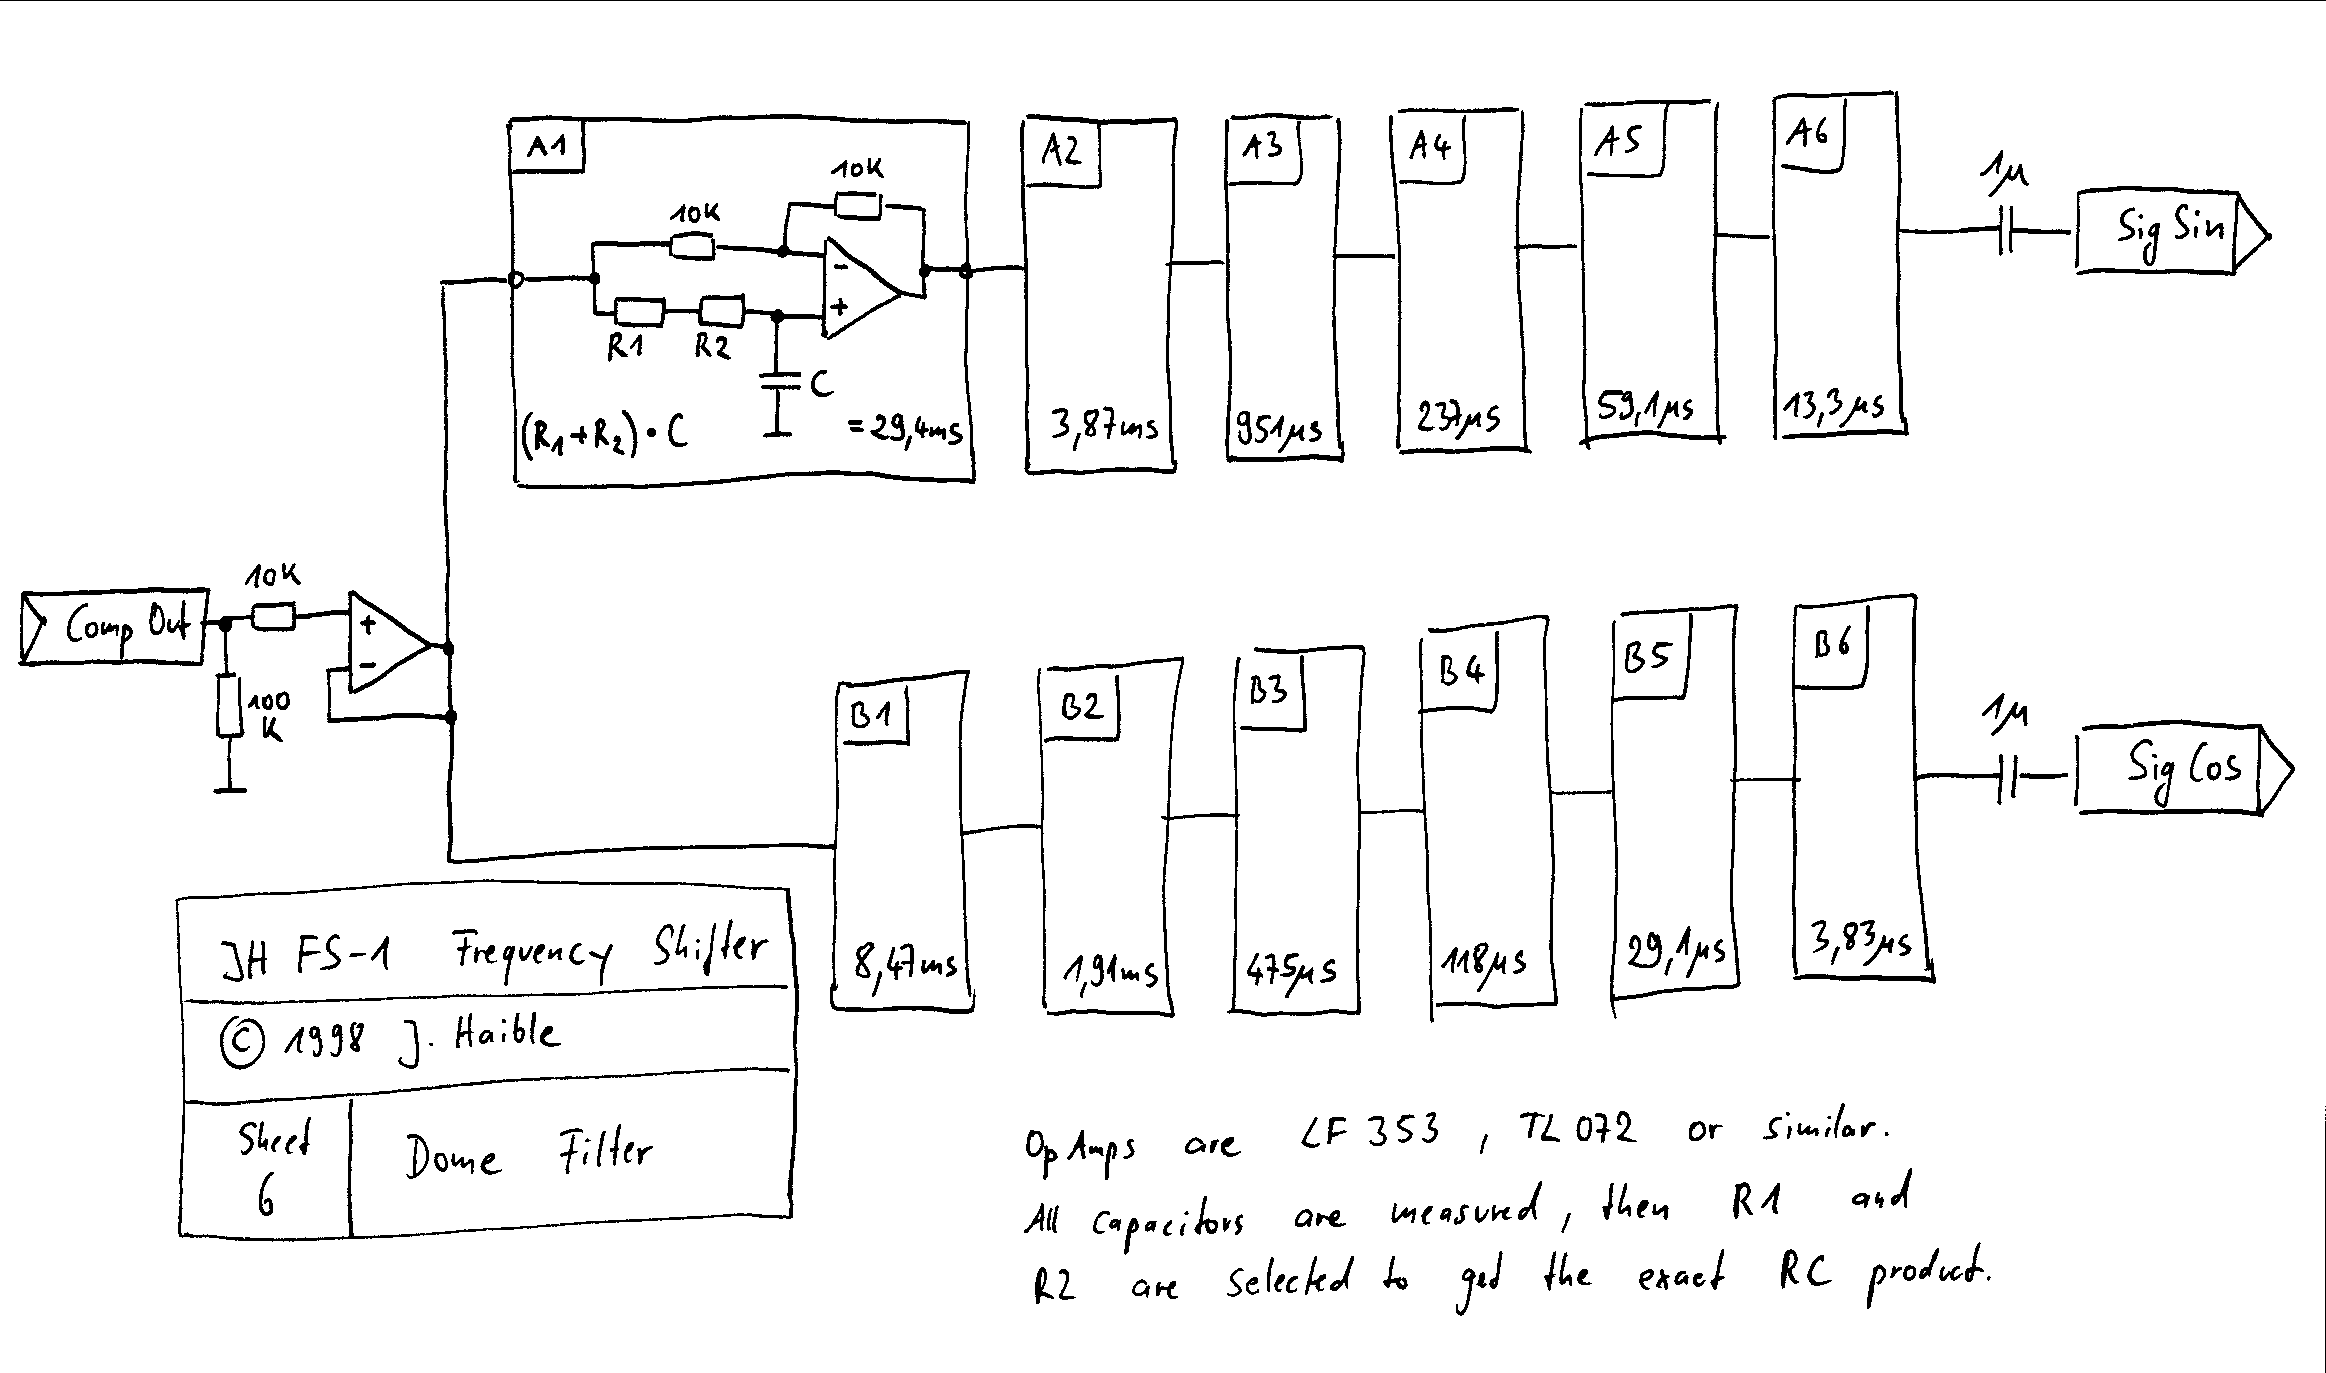 A1
10K
10K
-
+
R1 R2
C
(R1+R2)•C = 29,4ms
A2
3,87ms
A3
951µs
A4
237µs
A5
59,1µs
A6
13,3µs
1µ
Sig Sin
Comp Out
10K
+
-
100
K
B1
8,47ms
B2
1,91ms
B3
475µs
B4
118µs
B5
29,1µs
B6
3,83µs
1µ
Sig Cos
JH FS-1 Frequency Shifter
© 1998 J. Haible
Sheet
6
Dome Filter
OpAmps are LF 353, TL 072 or similar.
All capacitors are measured, then R1 and
R2 are selected to get the exact RC product.